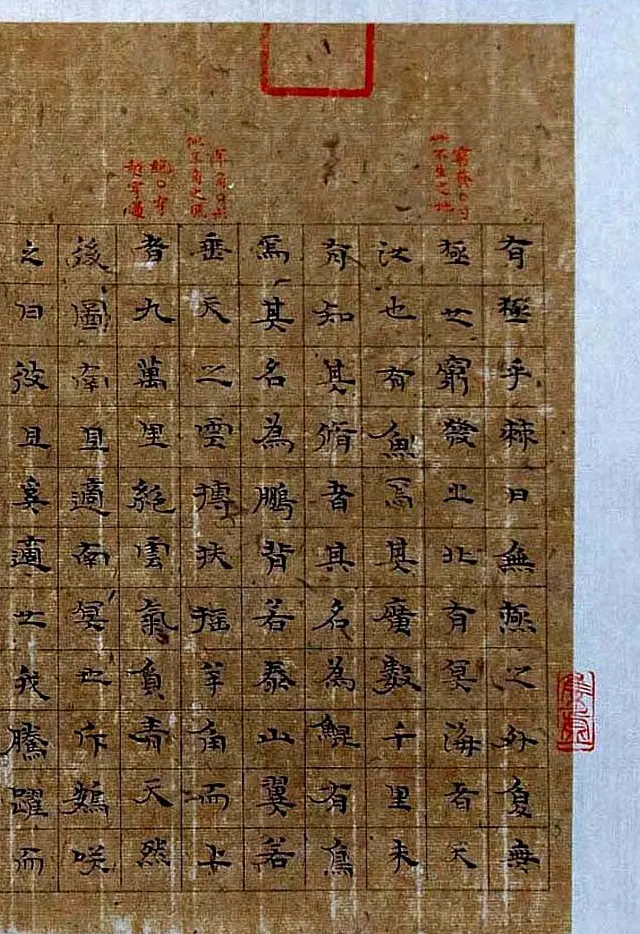 窮發
不生之地
羊角
羊角之風
有極乎棘曰無之外復無
極也窮發之北有冥海者天
池也有魚焉其廣數千里未
有知其脩者其名為鯤有鳥
焉其名為鵬背若泰山翼若
垂天之雲摶扶搖羊角而上
者九萬里絕雲氣負青天然
後圖南且適南冥也斥鷃咲
之曰彼且奚適也我騰躍而